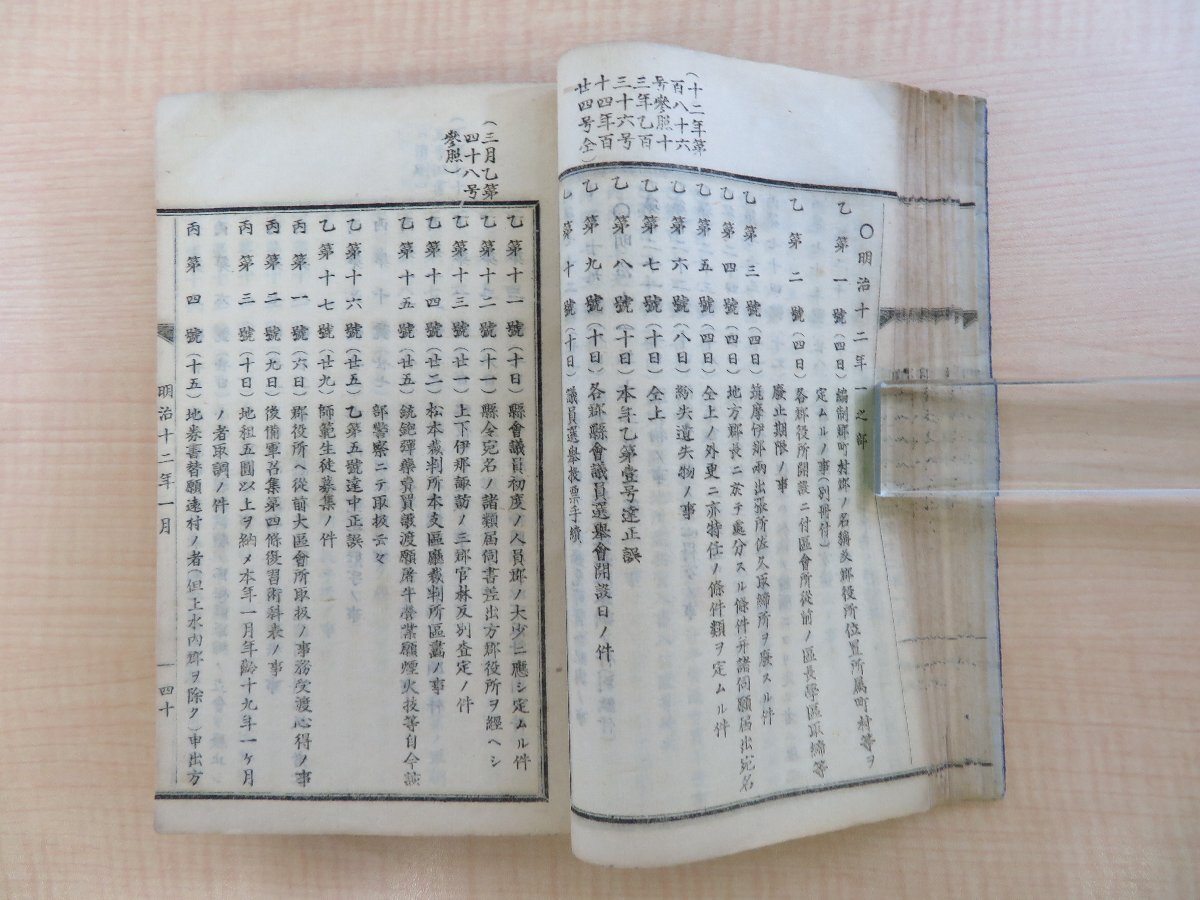 (十二年第
百八十六
号參照十
三年乙百
三十六号
十四年百
廿四号仝)
〇明治十二年一之部
乙第一號(四日)編制郡町村郡ノ名稱及郡役所位置所属町村等ヲ
定ムルノ事(別冊付)
乙第二號(四日)各郡役所開設ニ付區會所從前ノ區長學區取締等
廢止期限ノ事
乙第三號(四日)筑摩伊那兩出張所佐久取締所ヲ廢スル件
乙第四號(四日)地方郡長ニ於テ處分スル條件并諸伺願届出宛名
乙第五號(四日)仝上ノ外更ニ亦特任ノ條件類ヲ定ムル件
乙第六號(八日)紛失遺失物ノ事
乙第七號(十日)仝上
乙第八號(十日)本年乙第壹号達正誤
乙第九號(十日)各郡縣會議員選擧會開設日ノ件
乙第十號(十日)議員選擧投票手續
(三月乙第
四十八号
參照)
乙第十一號(十日)縣會議員初度ノ人員郡ノ大少ニ應シ定ムル件
乙第十二號(十一)縣令宛名ノ諸類届伺書差出方郡役所ヲ經ヘシ
乙第十三號(廿一)上下伊那諏訪ノ三郡官林反別査定ノ件
乙第十四號(廿二)松本裁判所本支區廳裁判所區畫ノ事
乙第十五號(廿五)銃砲彈藥賣買讓渡願屠牛營業願煙火技等自今該
部警察ニテ取扱云々
乙第十六號(廿五)乙第五號達中正誤
乙第十七號(廿九)師範生徒募集ノ件
丙第一號(六日)郡役所ヘ從前大區會所取扱ノ事務受渡心得ノ事
丙第二號(九日)後備軍召集第四條復習術科表ノ事
丙第三號(十日)地租五圓以上ヲ納メ本年一月年齡十九年一ヶ月
ノ者取調ノ件
丙第四號(十五)地券書替願遠村ノ者(但上水内郡ヲ除ク)申出方
明治十二年一月
四十